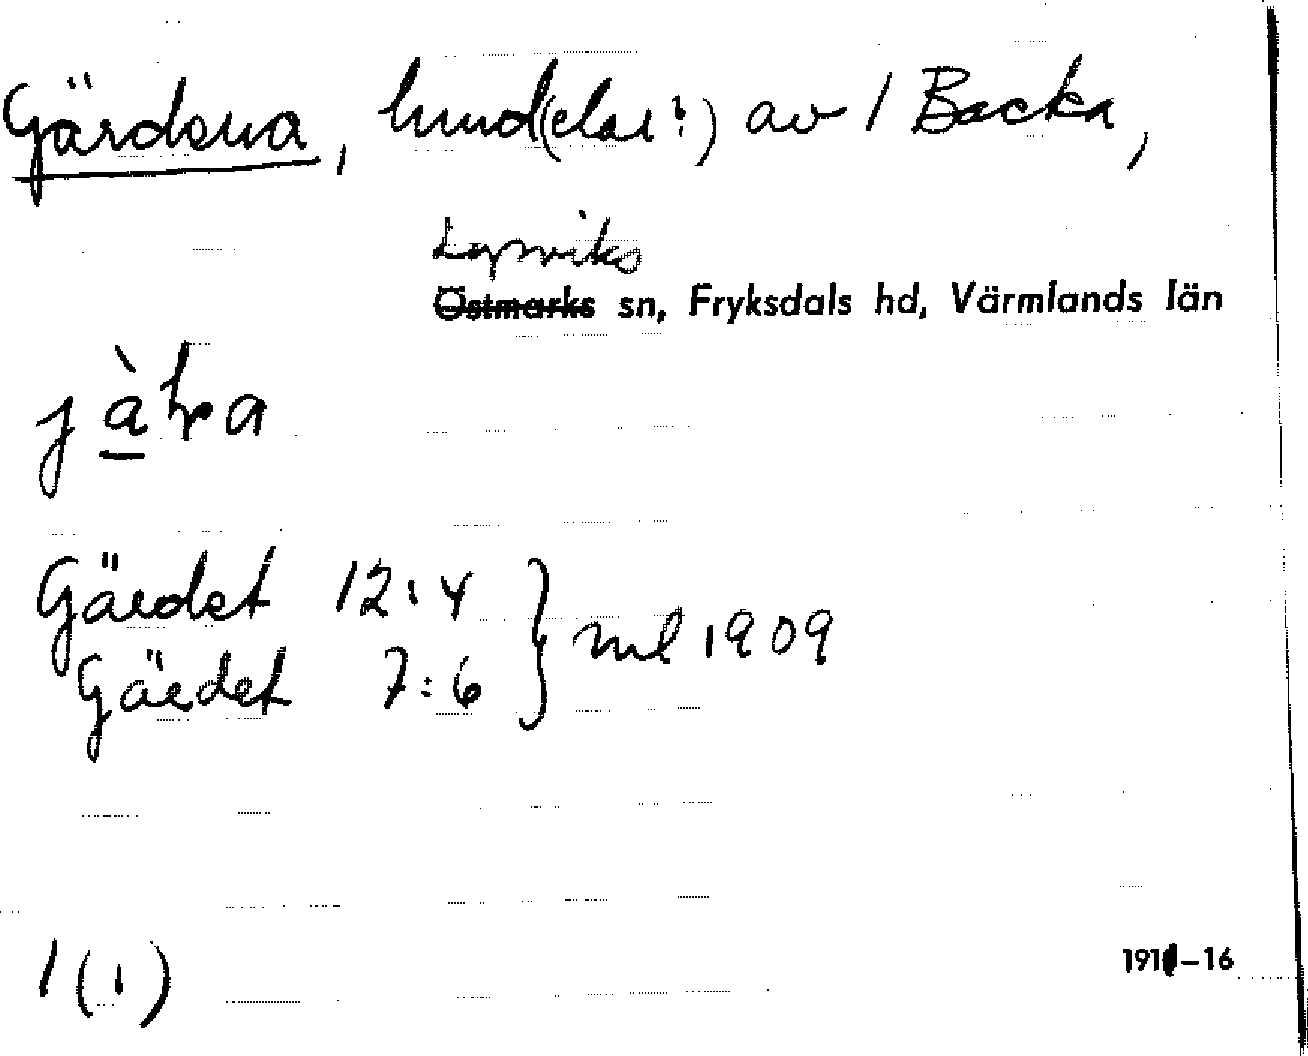 Gärdena, hmd(elar?) av 1 Backa,
Lysviks
Östmarks sn, Fryksdals hd, Värmlands län
Gärdet 12:4
Gärdet 7:6 } ml 1909
1 (1)
191 -16